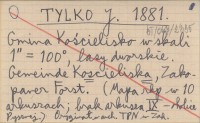 TYLKO J. 1881.
Gmina Kościelisko w skali
1" = 100°, lasy dworskie.
Gemeinde Kościeliska, Zako-
paner Forst. (Mapa rkp w 10
arkuszach; brak arkusza IX –
Pyszna.) Oryginał w ach. TPN w Zak.